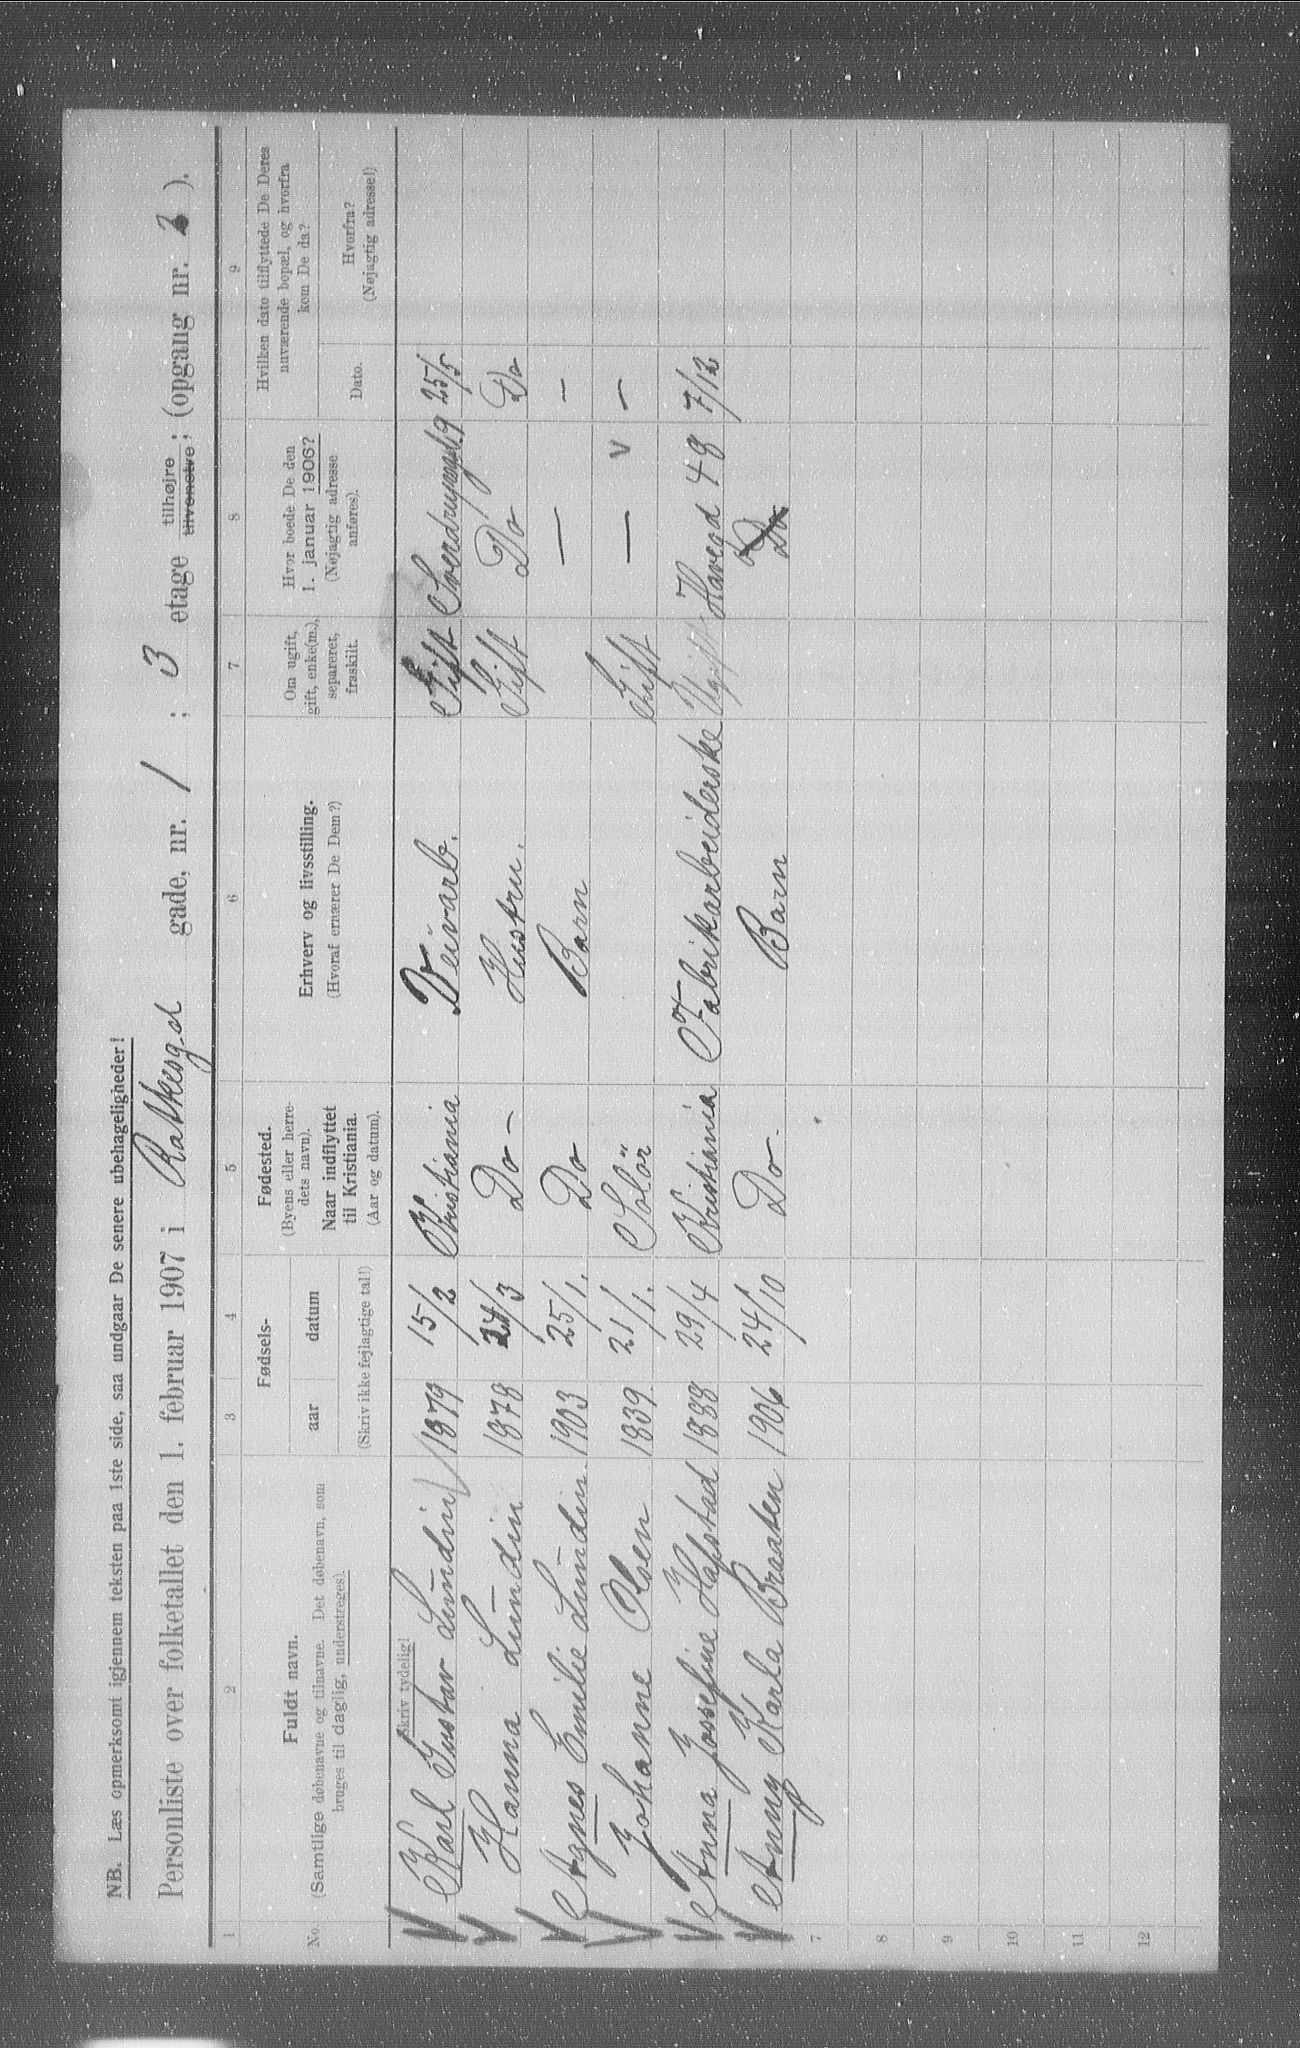 NB. Læs opmerksomt igjennem teksten paa 1ste side, saa undgaar De senere ubehageligheder!
Personliste over folketallet den 1. februar 1907 i Ratkesgd gade, nr. 1 ; 3 etage tilhøjre tilvenstre; (opgang nr. ).
1 2 3 4 5 6 7 8 9
No. Fuldt navn. (Samtlige døbenavne og tilnavne. Det døbenavn, som bruges til daglig, understreges).
Fødsels- aar datum (Skriv ikke fejlagtige tal!)
Fødested. (Byens eller herredets navn). Naar indflyttet til Kristiania. (Aar og datum).
Erhverv og livsstilling. (Hvoraf ernærer De Dem?)
Om ugift, gift, enke(m.), separeret, fraskilt.
Hvor boede De den 1. januar 1906? (Nøjagtig adresse anføres).
Hvilken dato tilflyttede De Deres nuværende bopæl, og hvorfra kom De da?
Dato. Hvorfra? (Nøjagtig adresse!)
Skriv tydelig!
Karl Gustav Lundin 1879 15/2 Kristiania Gift 25/5
Hanna Lundin 1878 Do - Hustru. Gift Do Do
Agnes Emilie Lundin 1903 25/1. Do Barn — –
Johanne Olsen 1839 21/1. Solör Gift — v –
Anna Josefine Hafstad 1888 29/4 Kristiania Fabrikarbeiderske Ugift 48 7/12
Anny Karla Braaten 1906 24/10 Do. Barn Do
7
8
9
10
11
12